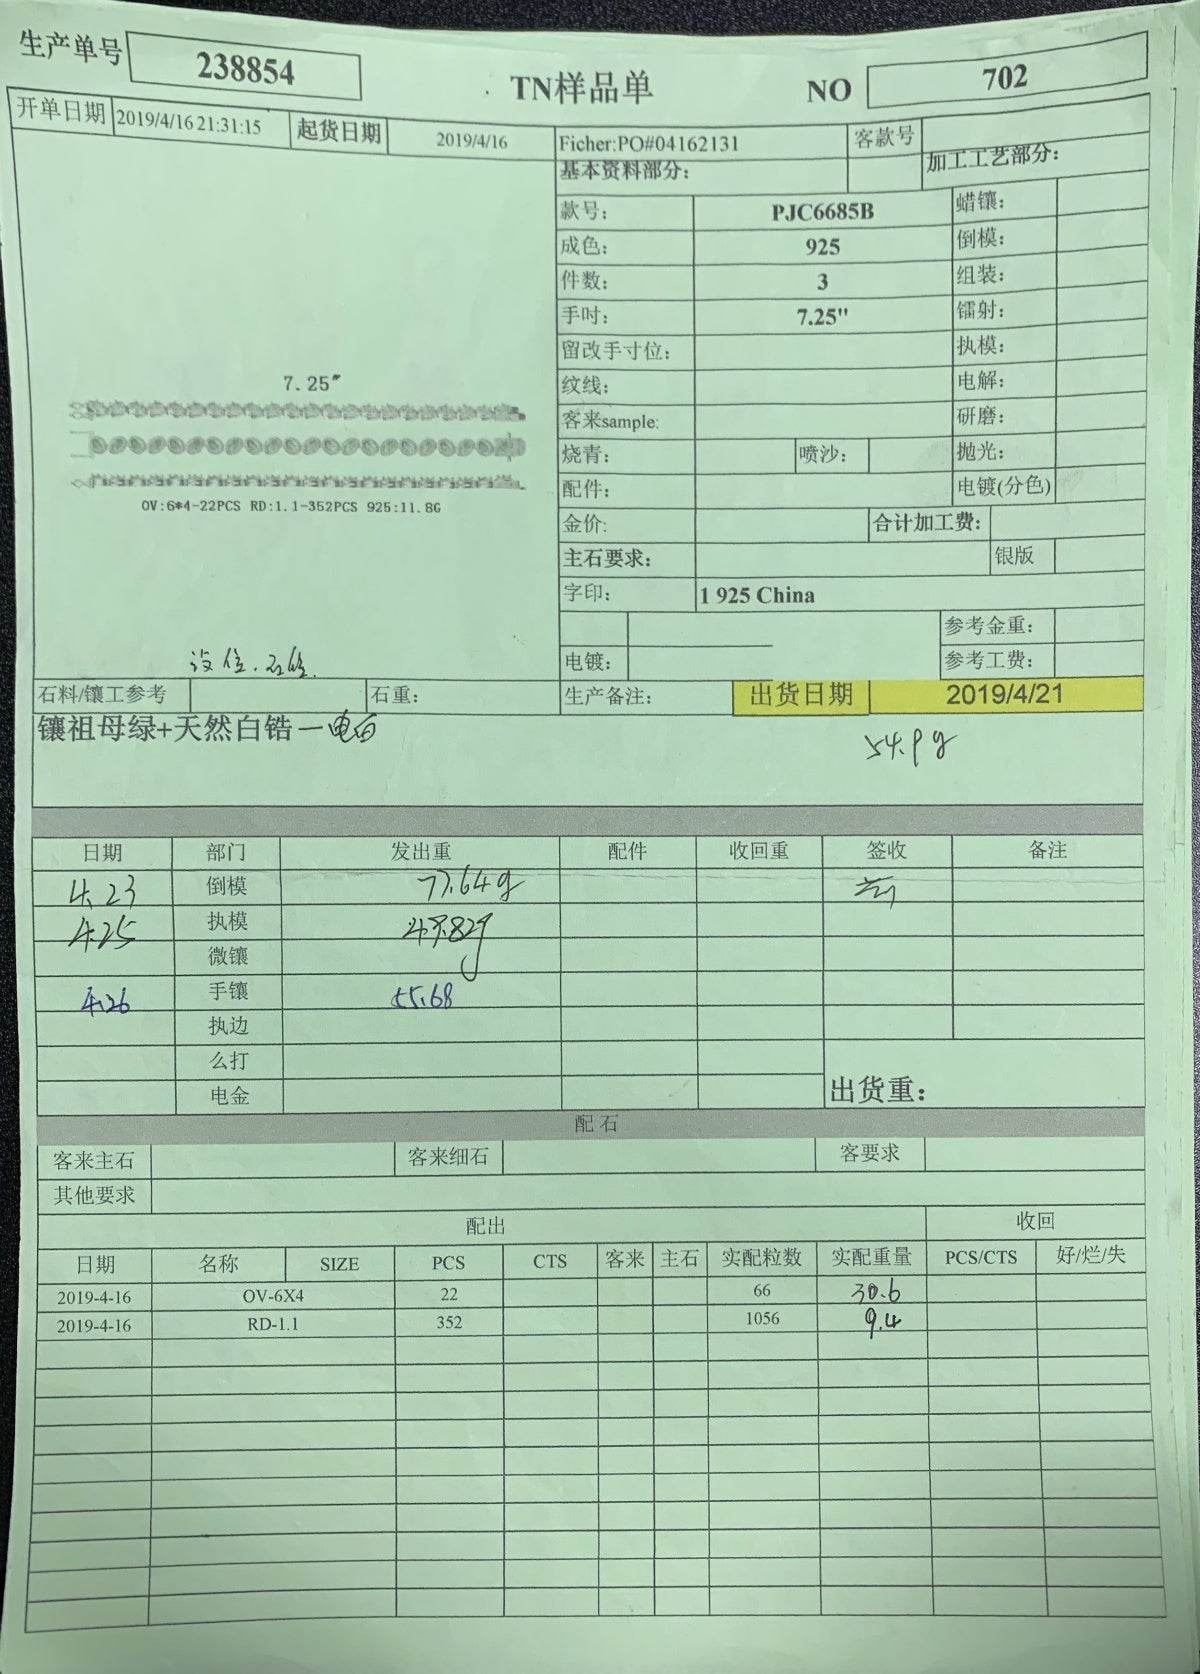 生产单号 238854 TN样品单 NO 702
开单日期 2019/4/16 21:31:15 起货日期 2019/4/16 Ficher:PO#04162131 客款号
基本资料部分: 加工工艺部分:
款号: PJC6685B 蜡镶:
成色: 925 倒模:
件数: 3 组装:
手吋: 7.25" 镭射:
留改手寸位: 执模:
纹线: 电解:
客来sample: 研磨:
烧青: 喷沙: 抛光:
配件: 电镀(分色)
金价: 合计加工费:
主石要求: 银版
字印: 1 925 China
参考金重:
电镀: 参考工费:
7.25"
OV:6*4-22PCS RD:1.1-352PCS 925:11.8G
石料/镶工参考 石重: 生产备注: 出货日期 2019/4/21
镶祖母绿+天然白锆一电白
54.9g
日期 部门 发出重 配件 收回重 签收 备注
4.23 倒模 77.64g
4.25 执模
微镶
4.26 手镶 55.68
执边
么打
电金 出货重:
配石
客来主石 客来细石 客要求
其他要求
配出 收回
日期 名称 SIZE PCS CTS 客来 主石 实配粒数 实配重量 PCS/CTS 好/烂/失
2019-4-16 OV-6X4 22 66 30.6
2019-4-16 RD-1.1 352 1056 9.4